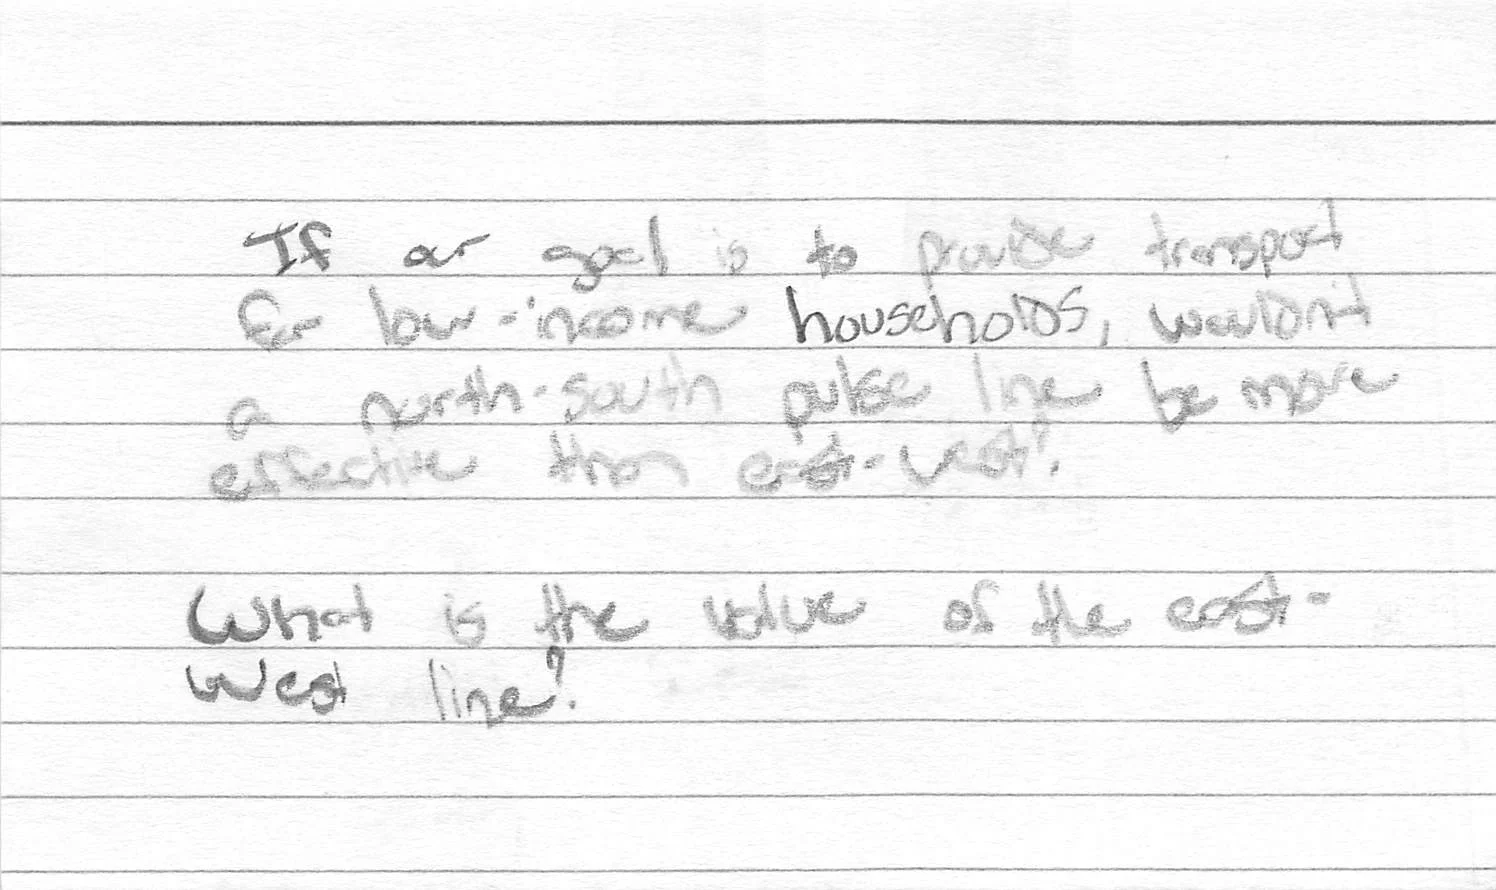 If our goal is to provide transport
for low-income households, wouldn't
a north-south pulse line be more
effective than east-west?
What is the value of the east-
west line?